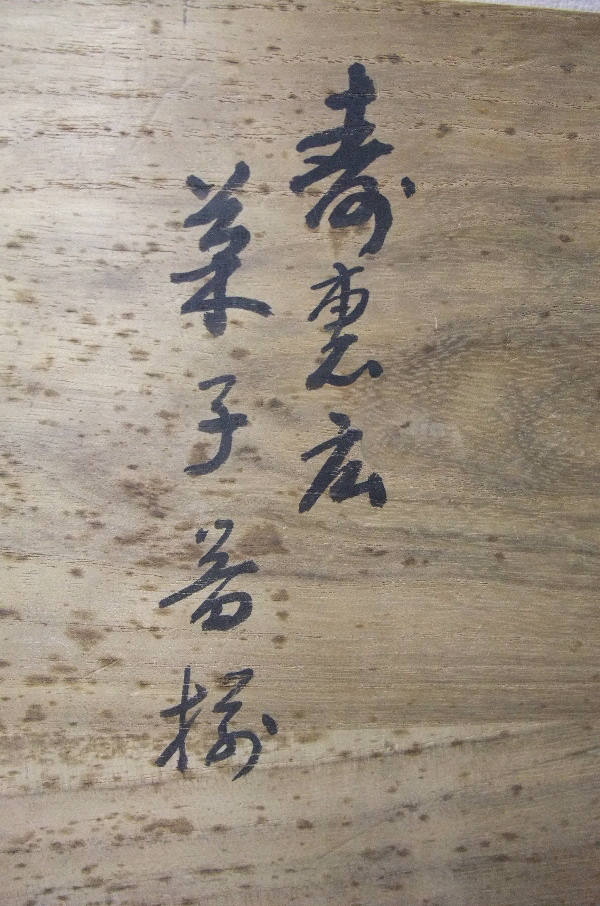 寿恵広
菓子器揃